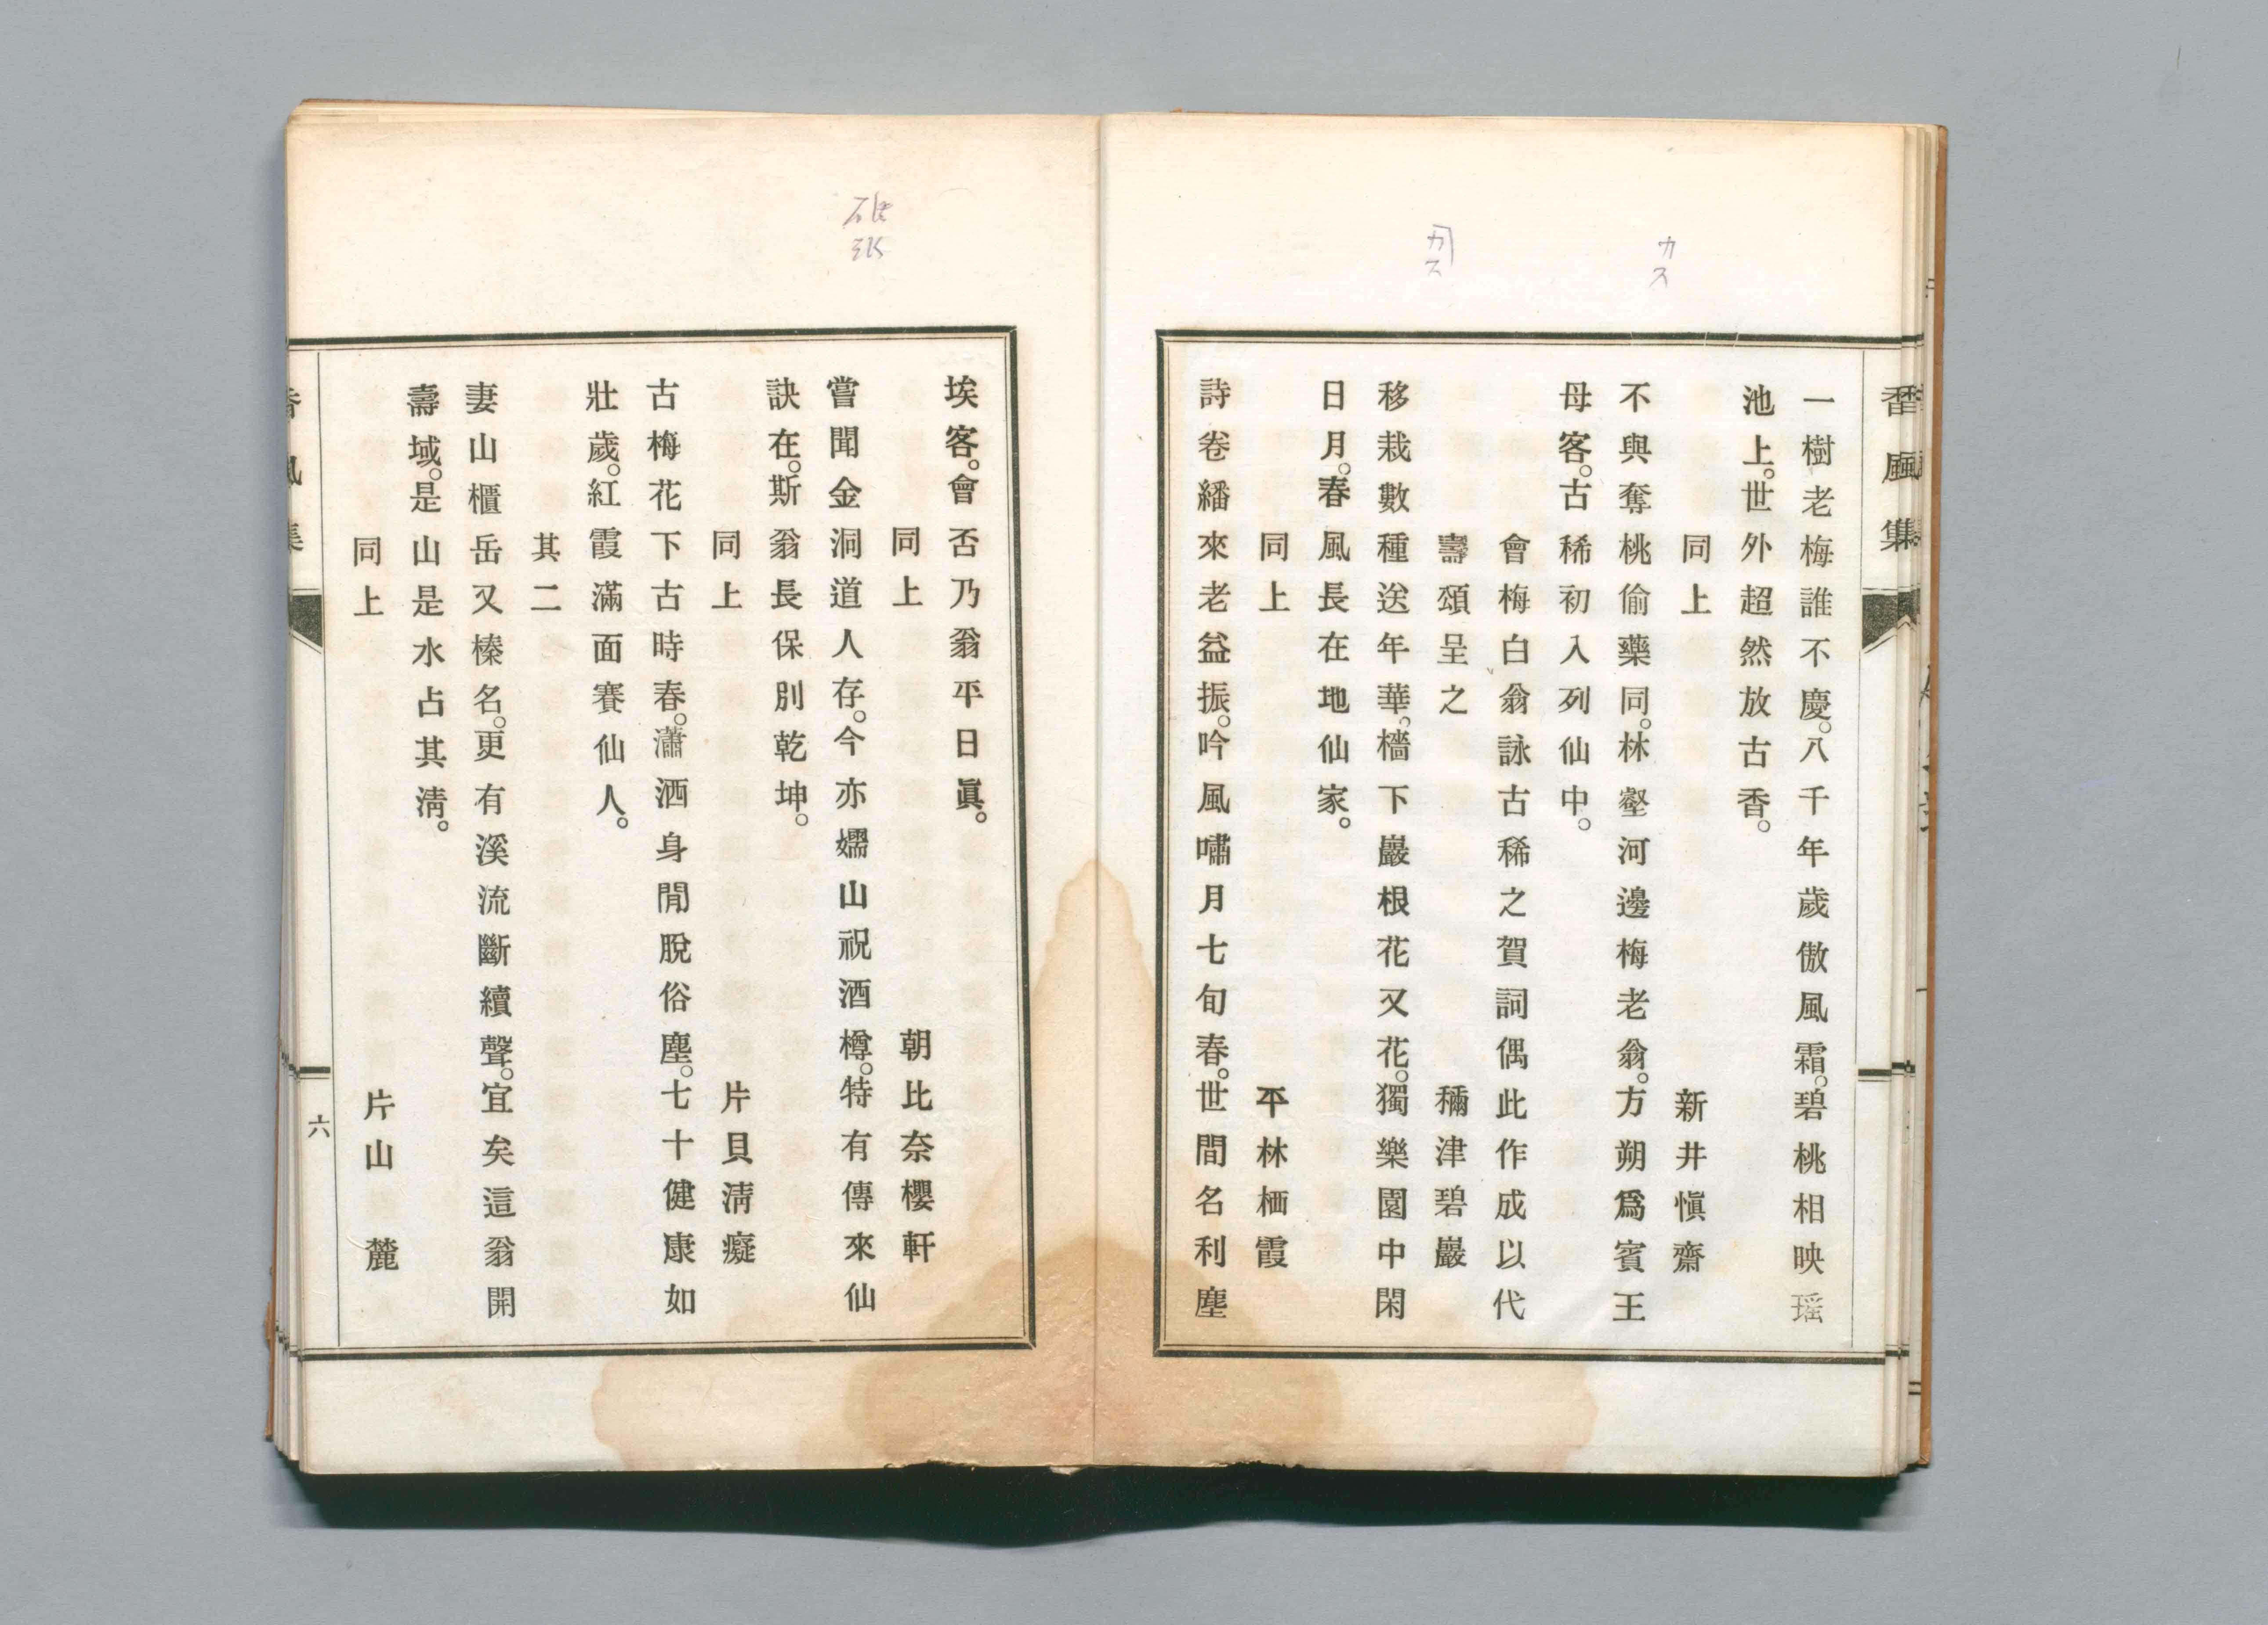 香風集
一樹老梅誰不慶。八千年歲傲風霜。碧桃相映瑶
池上。世外超然放古香。
同上 新井愼齋
不與奪桃偷藥同。林壑河邊梅老翁。方朔爲賓王
母客。古稀初入列仙中。
會梅白翁詠古稀之賀詞偶此作成以代
壽頌呈之 穪津碧巖
移栽數種送年華。檣下巖根花又花。獨樂園中閑
日月。春風長在地仙家。
同上 平林栖霞
詩卷繙來老益振。吟風嘯月七旬春。世間名利塵
埃客。會否乃翁平日眞。
同上 朝比奈櫻軒
嘗聞金洞道人存。今亦嬬山祝酒樽。特有傳來仙
訣在。斯翁長保別乾坤。
同上 片貝淸癡
古梅花下古時春。瀟洒身閒脫俗塵。七十健康如
壯歲。紅霞滿面賽仙人。
其二
妻山櫃岳又榛名。更有溪流斷續聲。宜矣這翁開
壽域。是山是水占其淸。
同上 片山 麓
香風集
六
カス
カス